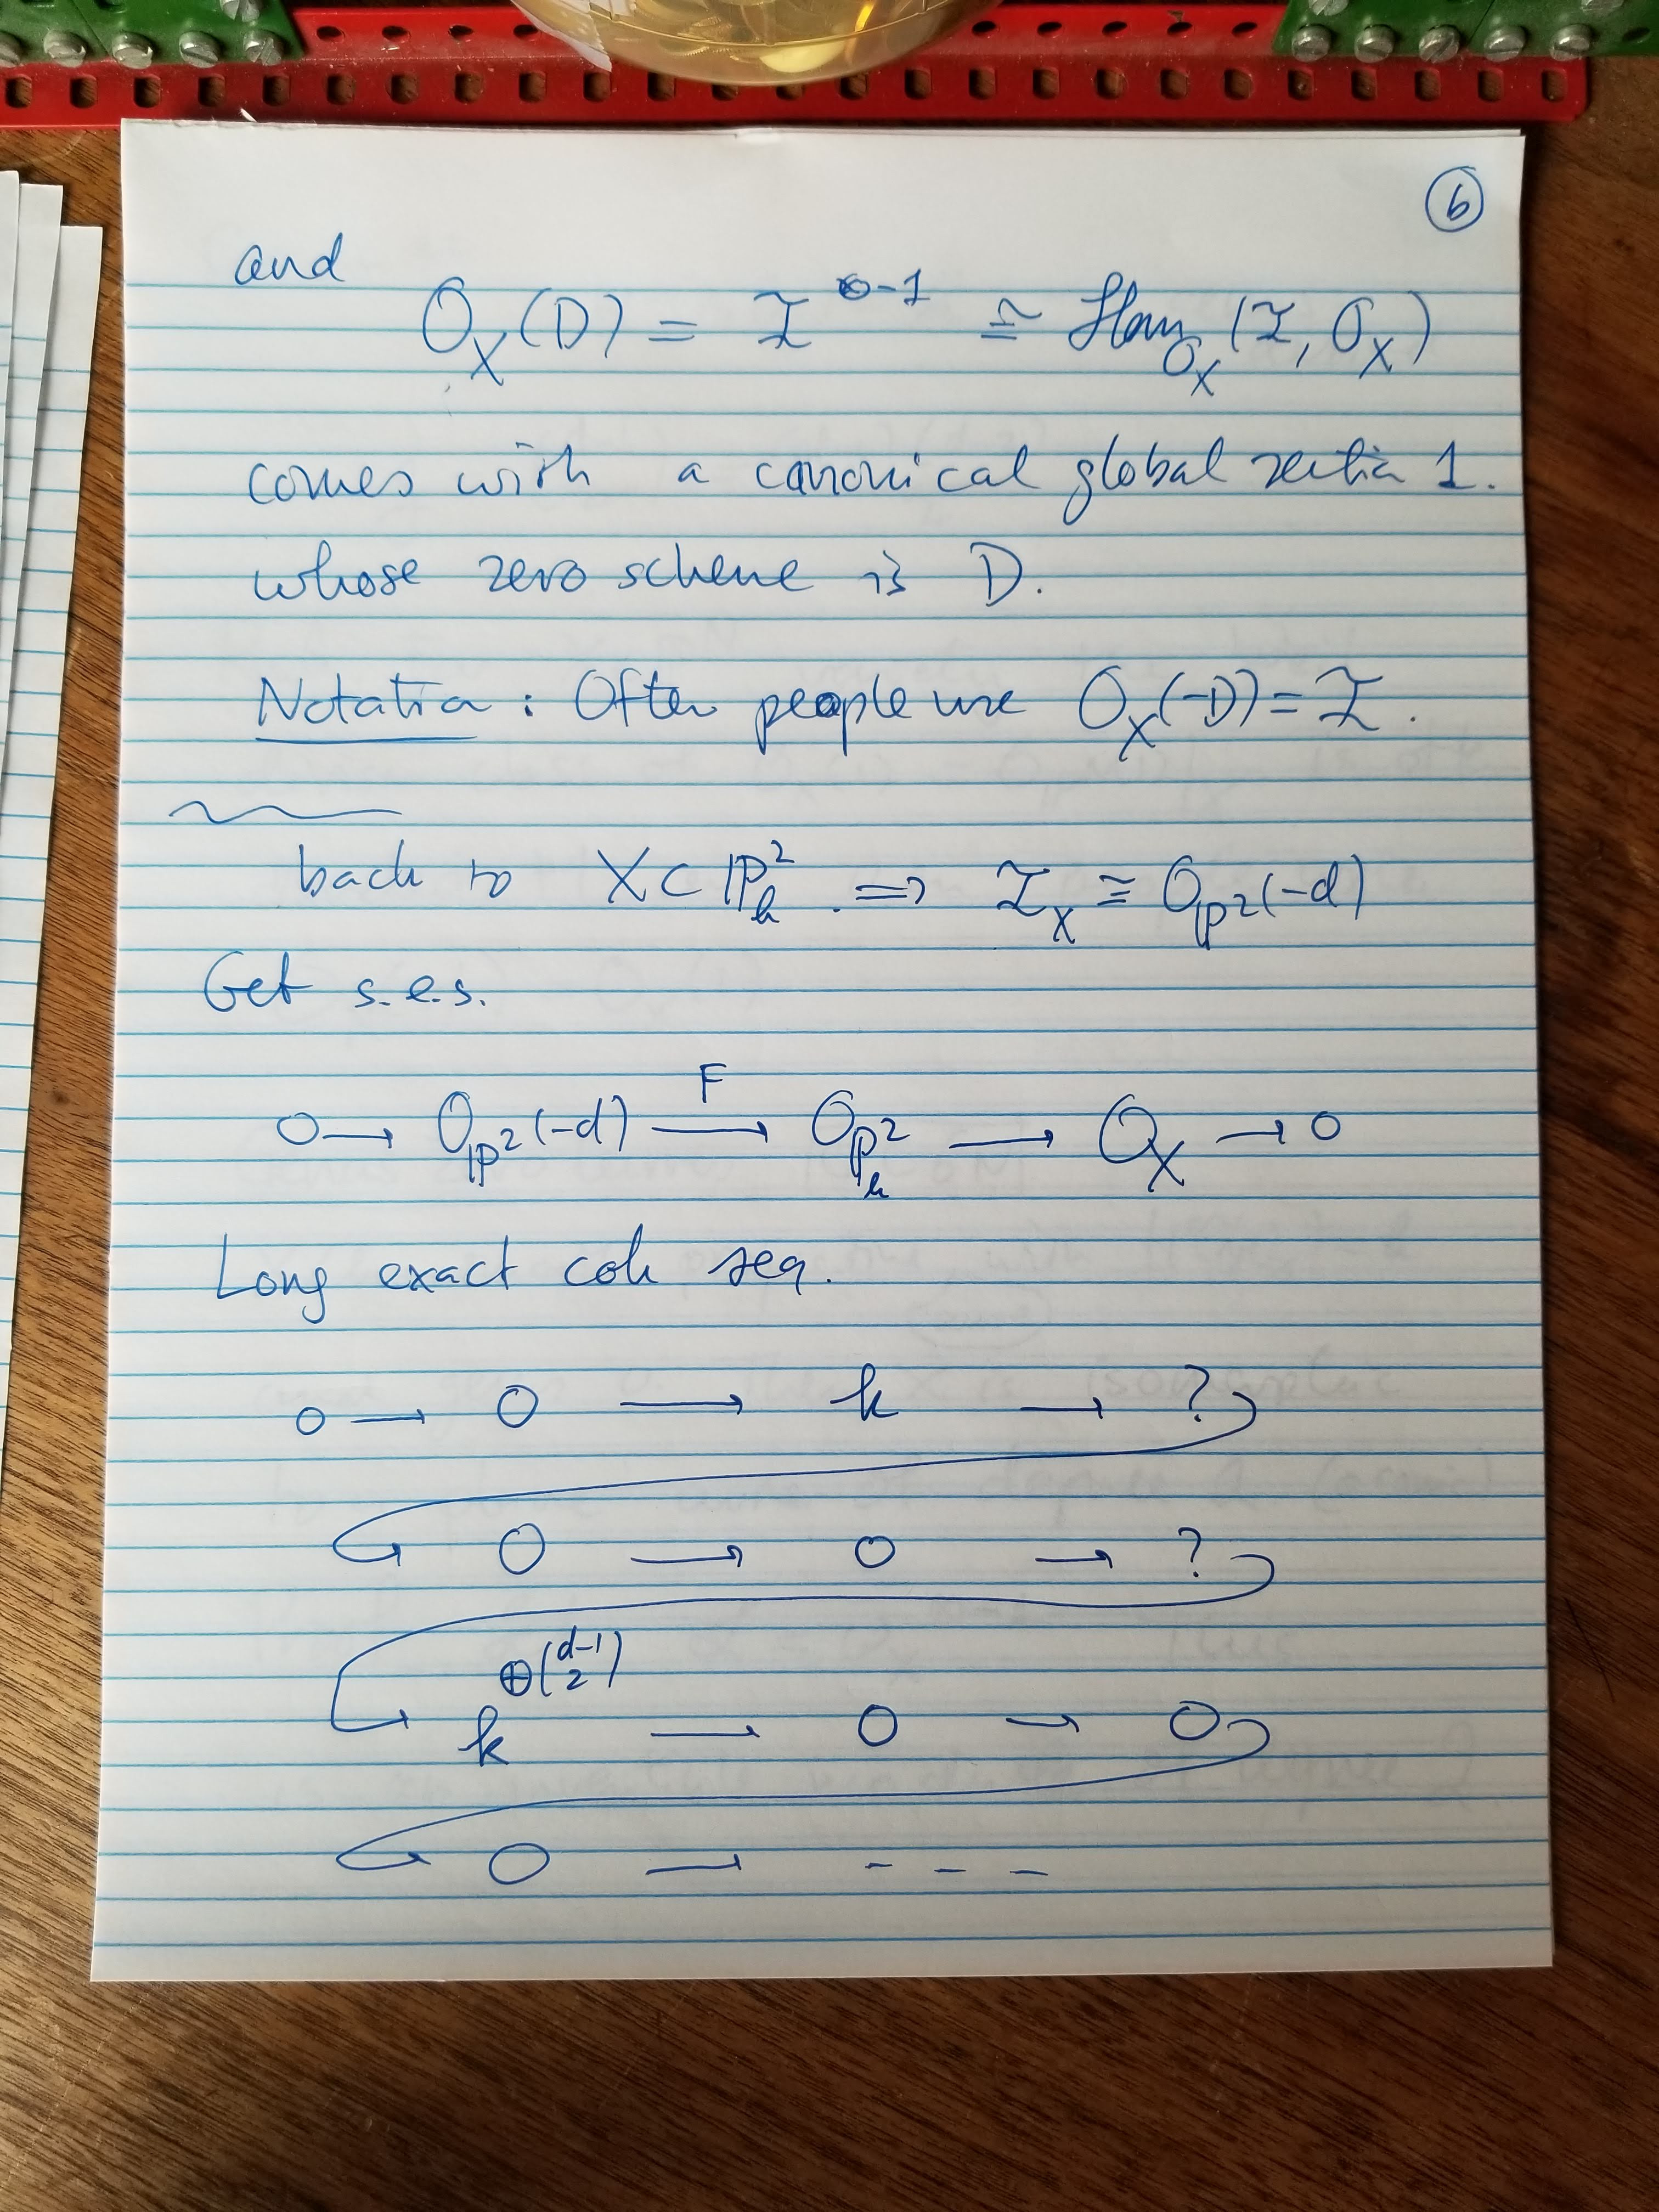 ⑥
and
O_X(D) = I^{⊗-1} ≅ Hom_{O_X}(I, O_X)
comes with a canonical global section 1.
whose zero scheme is D.
Notation : Often people use O_X(-D) = I.
back to X ⊂ ℙ²_k. ⇒ I_X ≅ O_{ℙ²}(-d)
Get s.e.s.
0 → O_{ℙ²}(-d) —F→ O_{ℙ²_k} → O_X → 0
Long exact coh seq.
0 → 0 → k → ?
↪ 0 → 0 → ?
↪ k^{⊕(d-1 2)} → 0 → 0
↪ 0 → - - -